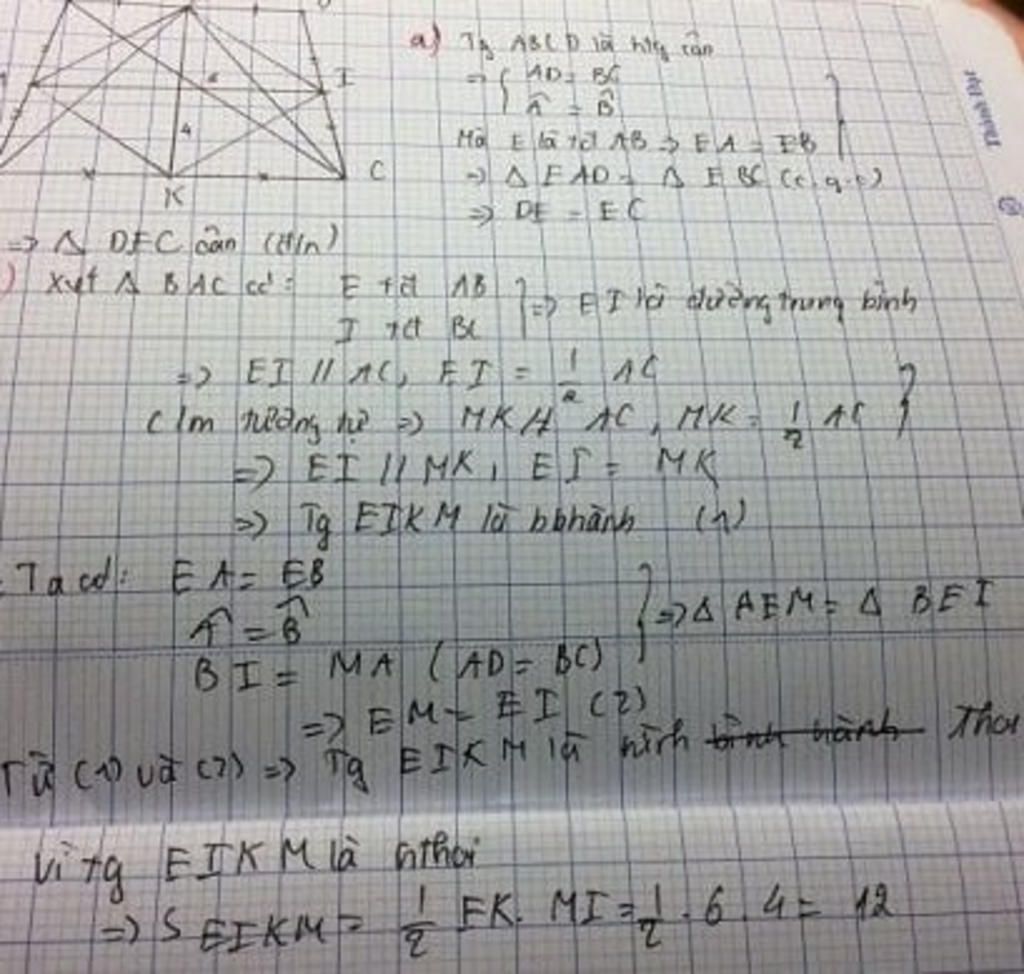 a) Tg ABCD là htg cân
=> { AD = BC
Â = B̂ }
Mà E là tđ AB => EA = EB
=> Δ EAD = Δ EBC (c.g.c)
=> DE = EC
I
6
4
C
K
=> Δ DEC cân (đ/n)
) Xét Δ BAC có: E tđ AB
I tđ BC } => EI là đường trung bình
=> EI // AC, EI = 1/2 AC
C/m tương tự => MK // AC, MK = 1/2 AC }
=> EI // MK, EI = MK
=> Tg EIKM là hbhành (1)
Ta có: EA = EB
Â = B̂
BI = MA (AD = BC) } => Δ AEM = Δ BEI
=> EM = EI (2)
Từ (1) và (2) => Tg EIKM là hình bình hành Thoi
Vì tg EIKM là hthoi
=> S EIKM = 1/2 EK. MI = 1/2 . 6 . 4 = 12